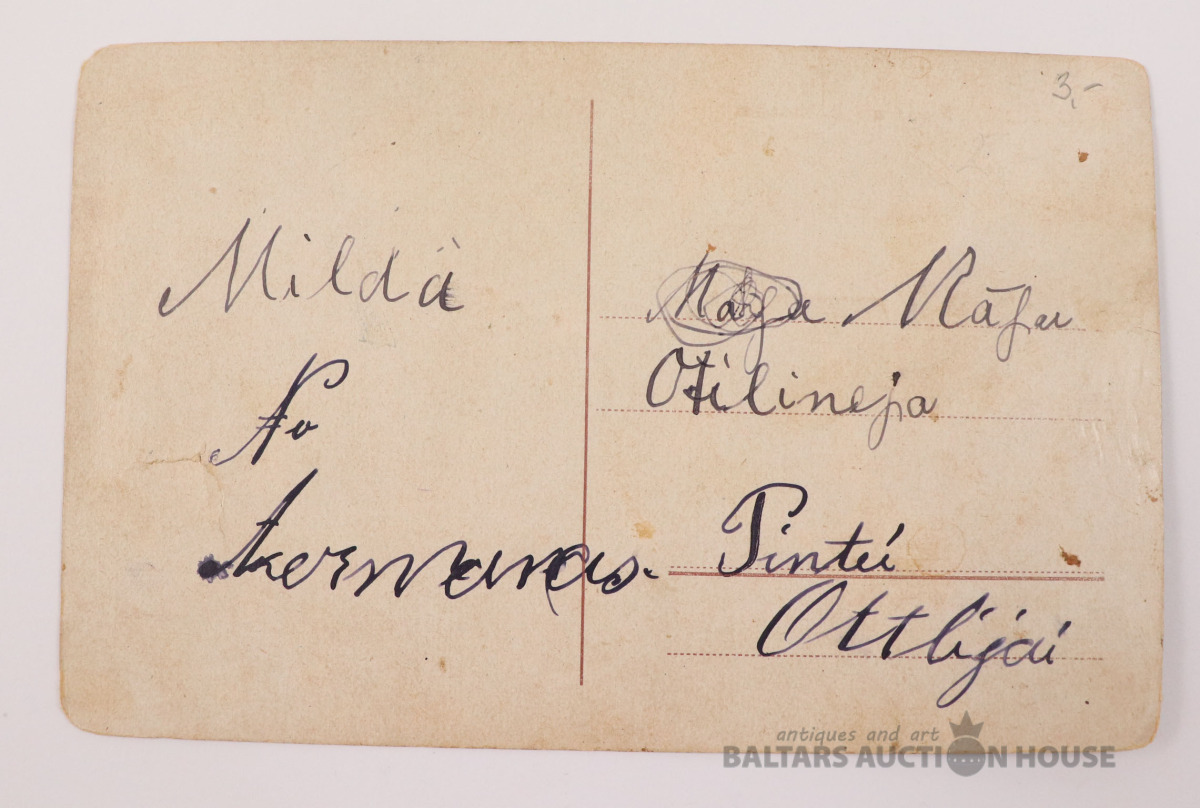 3,-
Mildä
No
Akermanas.
Māsa
Otilineja
Pintei
Ottlijai
antiques and art
BALTARS AUCTION HOUSE